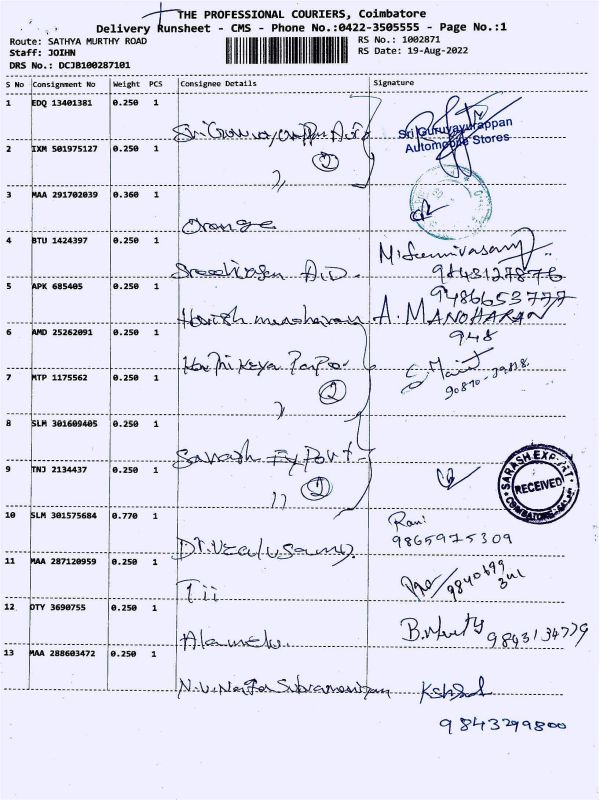 THE PROFESSIONAL COURIERS, Coimbatore
Delivery Runsheet - CMS - Phone No.:0422-3505555 - Page No.:1
Route: SATHYA MURTHY ROAD
RS No.: 1002871
Staff: JOIHN
RS Date: 19-Aug-2022
DRS No.: DCJB100287101
S No Consignment No Weight PCS Consignee Details Signature
1 EDQ 13401381 0.250 1
Sri Guruvayurappan
Automobile Stores
2 IXM 501975127 0.250 1
2
3 MAA 291702039 0.360 1
Orange
4 BTU 1424397 0.250 1
M. Sreenivasan
9443127876
5 APK 685405 0.250 1
9486653777
A. MANOHARAN
948
6 AMD 25262091 0.250 1
7 MTP 1175562 0.250 1
2
8 SLM 301609405 0.250 1
Sarash Export
9 TNJ 2134437 0.250 1
2
SARASH EXPORT
RECEIVED
10 SLM 301575684 0.770 1
Rani
9865975309
11 MAA 287120959 0.250 1
Tii
12 OTY 3690755 0.250 1
Alamelu.
9843134779
13 MAA 288603472 0.250 1
9843299800